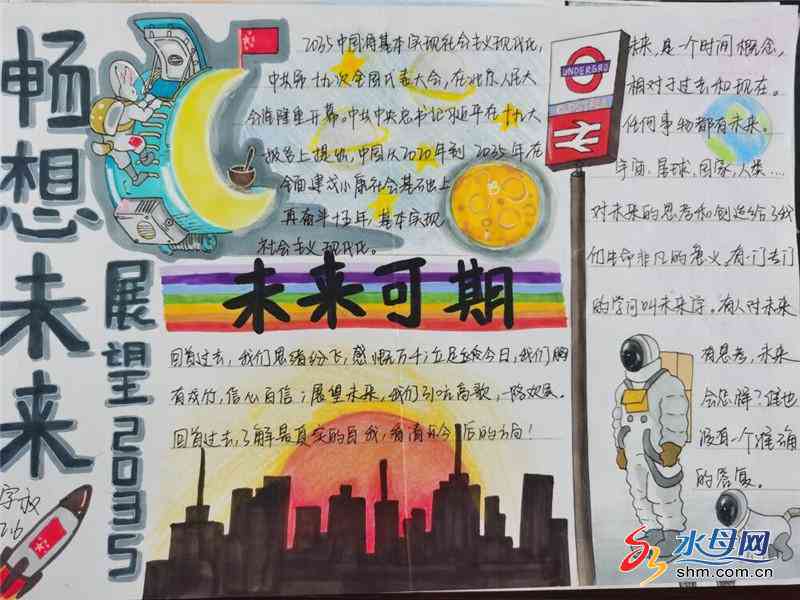 畅想未来
展望2035
2035中国将基本实现社会主义现代化,
中共第十九次全国代表大会,在北京人民大
会堂隆重开幕。中共中央总书记习近平在十九大
报告上提出,中国从2020年到2035年在
全面建成小康社会基础上
再奋斗十五年,基本实现
社会主义现代化。
UNDERGRO
未来,是一个时间概念,
相对于过去和现在。
任何事物都有未来。
宇宙、星球、国家、人类…
对未来的思考和创造给了我
们生命非凡的意义。有一门专门
的学问叫未来学。有人对未来
有思考,未来
会怎样?谁也
没有一个准确
的答复。
未来可期
回首过去,我们思绪纷飞,感慨万千;立足今日,我们胸
有成竹,信心百倍;展望未来,我们引吭高歌,一路欢笑。
回首过去,了解最真实的自我,看清以今后的方向!
水母网
shm.com.cn